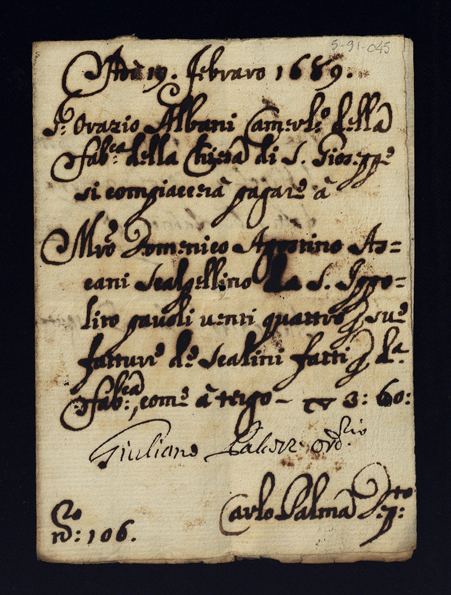 5-91-045
Adi 19. Febraro 1689.
Sr. Orazio Albani Camerl.o della
Fab.ca della Chiesa di S. Gioseppe
si compiacerà pagare à
Mro Domenico Agostino As=
cani Scalpellino da S. Ippo=
lito pauoli uenti quattro p sue
fatture de Scalini fatti p da.
Fab.ca, come à tergo — 3: 60:
Giuliano
Carlo Palma
no: 106.